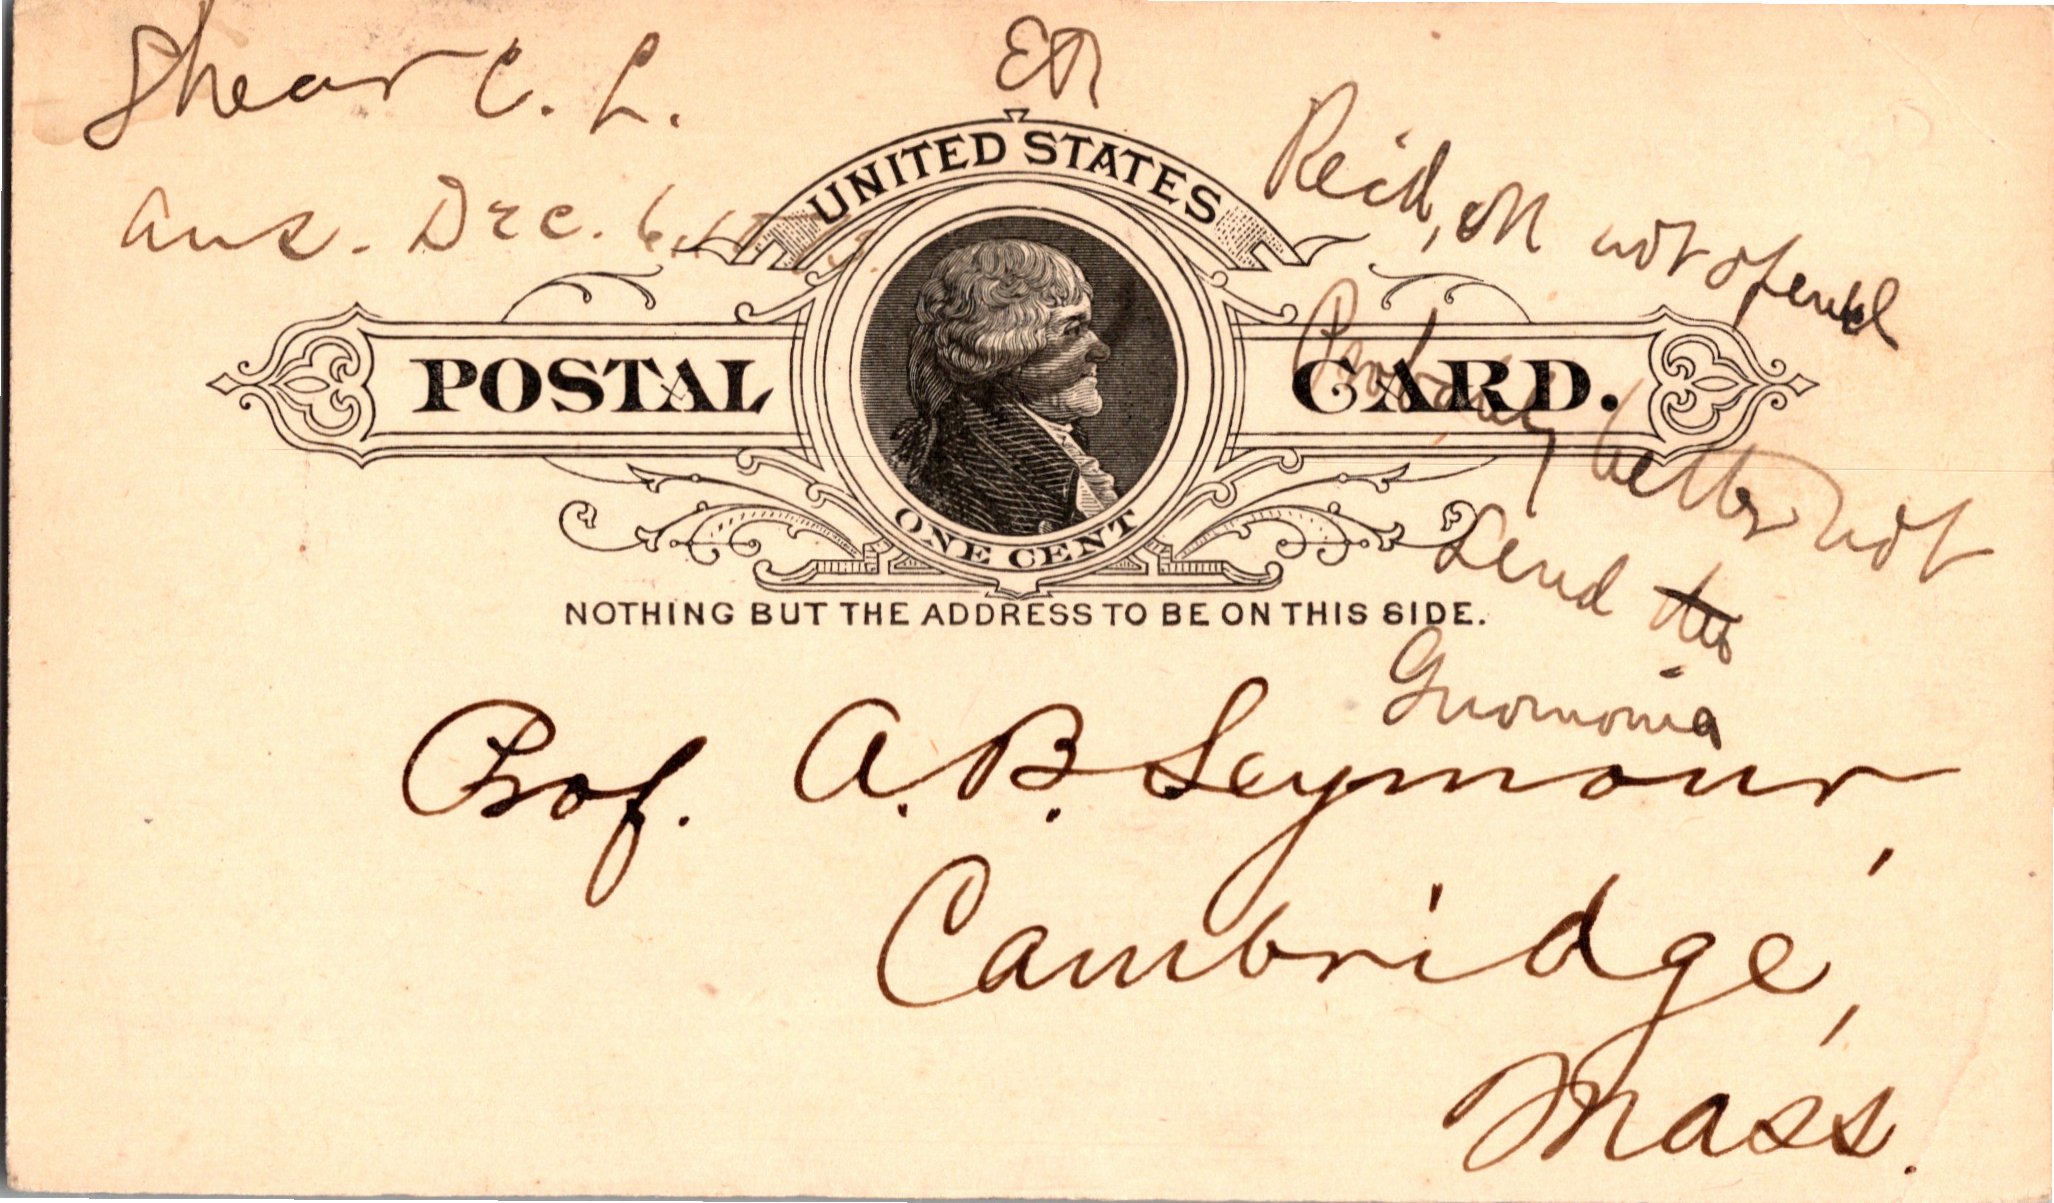 Shear C. L.
Ans. Dec. 6,
UNITED STATES
Rec'd, not opened
POSTAL CARD.
Probably better not
send the
Gnomonia
ONE CENT
NOTHING BUT THE ADDRESS TO BE ON THIS SIDE.
Prof. A. B. Seymour,
Cambridge,
Mass.